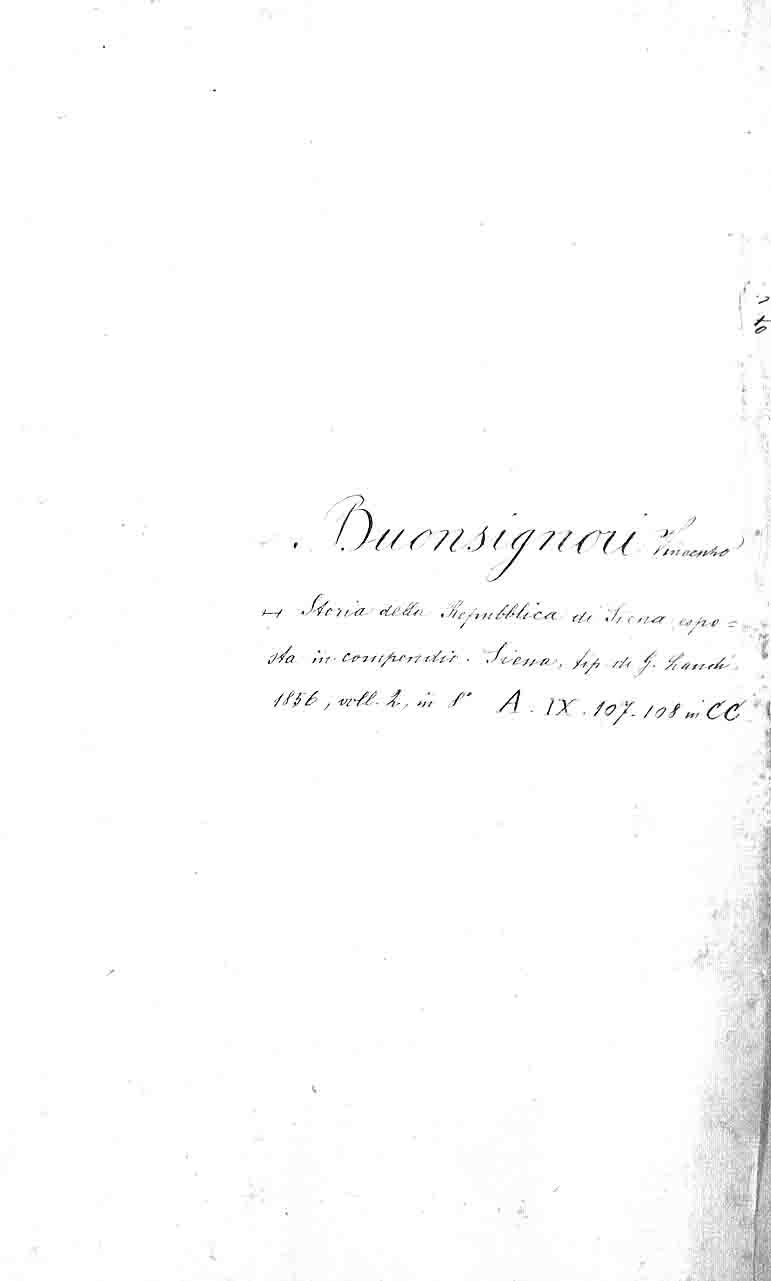 . Buonsignori Vincenzo
↦ Storia della Repubblica di Siena espo=
sta in compendio. Siena, tip. di G. Landi.
1856, voll. 2, in 8° A. IX. 107-108 in CC